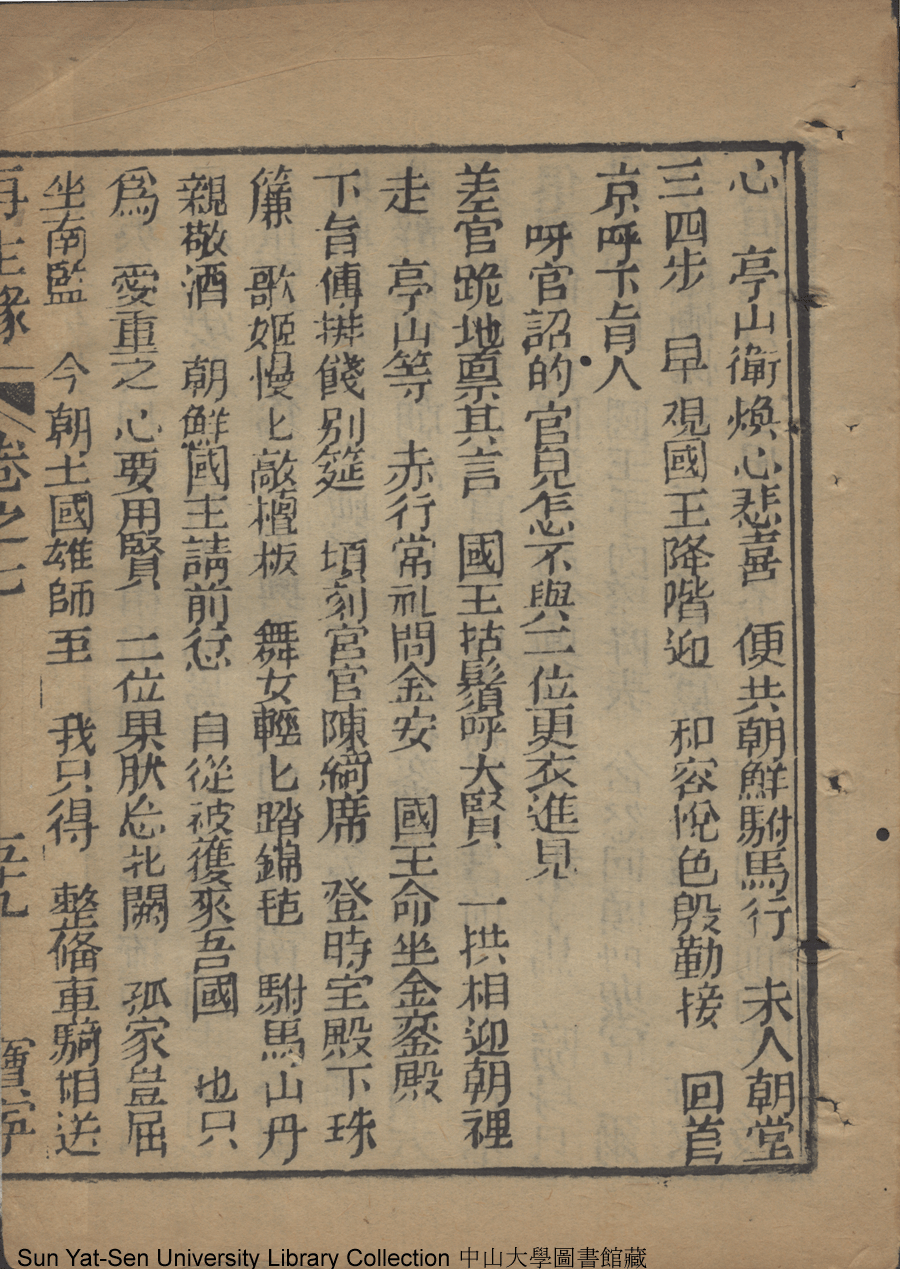 心 亭山衛煥心悲喜 便共朝鮮駙馬行 未人朝堂
三四步 早覌國王降階迎 和容悅色殷勤接 回首
京呼下旨人
呀官詔的官兒怎不與二位更衣進見
差官跪地禀其言 國王拈鬚呼大賢 一拱相迎朝裡
走 亭山等 赤行常礼問金安 國王命坐金鑾殿
下旨傳挷餞別筵 頃刻宮官陳綺席 登時宝殿下珠
簾 歌姬慢匕敲檀板 舞女輕匕踏錦毡 駙馬山丹
親敬酒 朝鮮國主請前愆 自從被獲來吾國 也只
爲 愛重之心要用賢 二位果肰忘北闕 孤家豈屈
坐南監 今朝土國雄師至 我只得 整俻車騎相送
再生緣 卷之七 五十九 寶寧
Sun Yat-Sen University Library Collection 中山大學圖書館藏